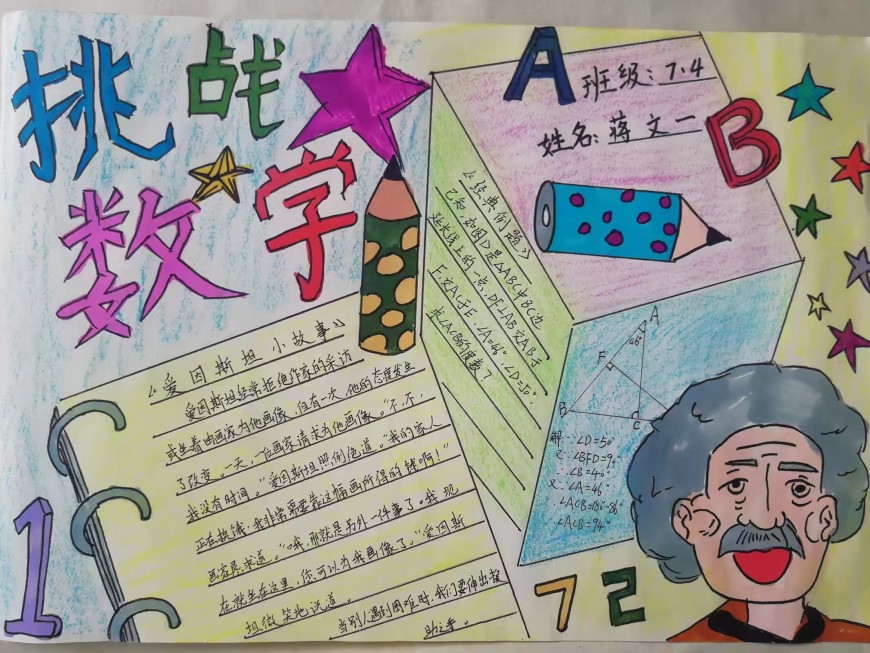 挑战
数学
A
班级：7.4
姓名：蒋文一
B
《经典例题》
已知，如图D是△ABC中BC边
延长线上的一点，DF⊥AB交AB于
F，交AC于E，∠A=46°，∠D=50°，
求∠ACB的度数？
A
46°
F
B
C
解∵∠D=50
又∵∠BFD=90
∴∠B=40°
又∵∠A=46°
∠ACB=180°-86°
∴∠ACB=94°
《爱因斯坦小故事》
爱因斯坦经常拒绝作家的采访
或坐着由画家为他画像，但有一次，他的态度发生
了改变。一天，一位画家请求为他画像。“不，不，
我没有时间。”爱因斯坦照例他道。“我的家人
正在挨饿，我非常需要靠这幅画所得的钱啊！”
画家恳求道。“哦，那就是另外一件事了。我现
在就坐在这里，你可以为我画像了。”爱因斯
坦微笑地说道。
当别人遇到困难时，我们要伸出援
助之手。
1
7
2